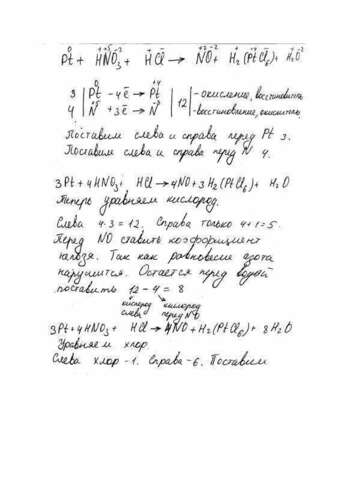 Pt⁰ + H⁺N⁺⁵O₃⁻² + H⁺Cl⁻ → N⁺²O⁻² + H₂⁺(Pt⁺⁴Cl₆⁻) + H₂⁺O⁻²
3 | Pt⁰ - 4ē → Pt⁺⁴ | 12 | - окисление, восстановитель
4 | N⁺⁵ + 3ē → N | - восстановление, окислитель
Поставим слева и справа перед Pt 3.
Поставим слева и справа перед N 4.
3Pt + 4HNO₃ + HCl → 4NO + 3H₂(PtCl₆) + H₂O
Теперь уравняем кислород.
Слева 4·3 = 12. Справа только 4+1=5.
Перед NO ставить коэффициент
нельзя. Так как равновесие азота
нарушится. Остается перед водой
поставить 12 - 4 = 8
кислород слева кислород перед NO
3Pt + 4HNO₃ + HCl → 4NO + H₂(PtCl₆) + 8H₂O
Уравняем хлор.
Слева хлор - 1. Справа - 6. Поставим